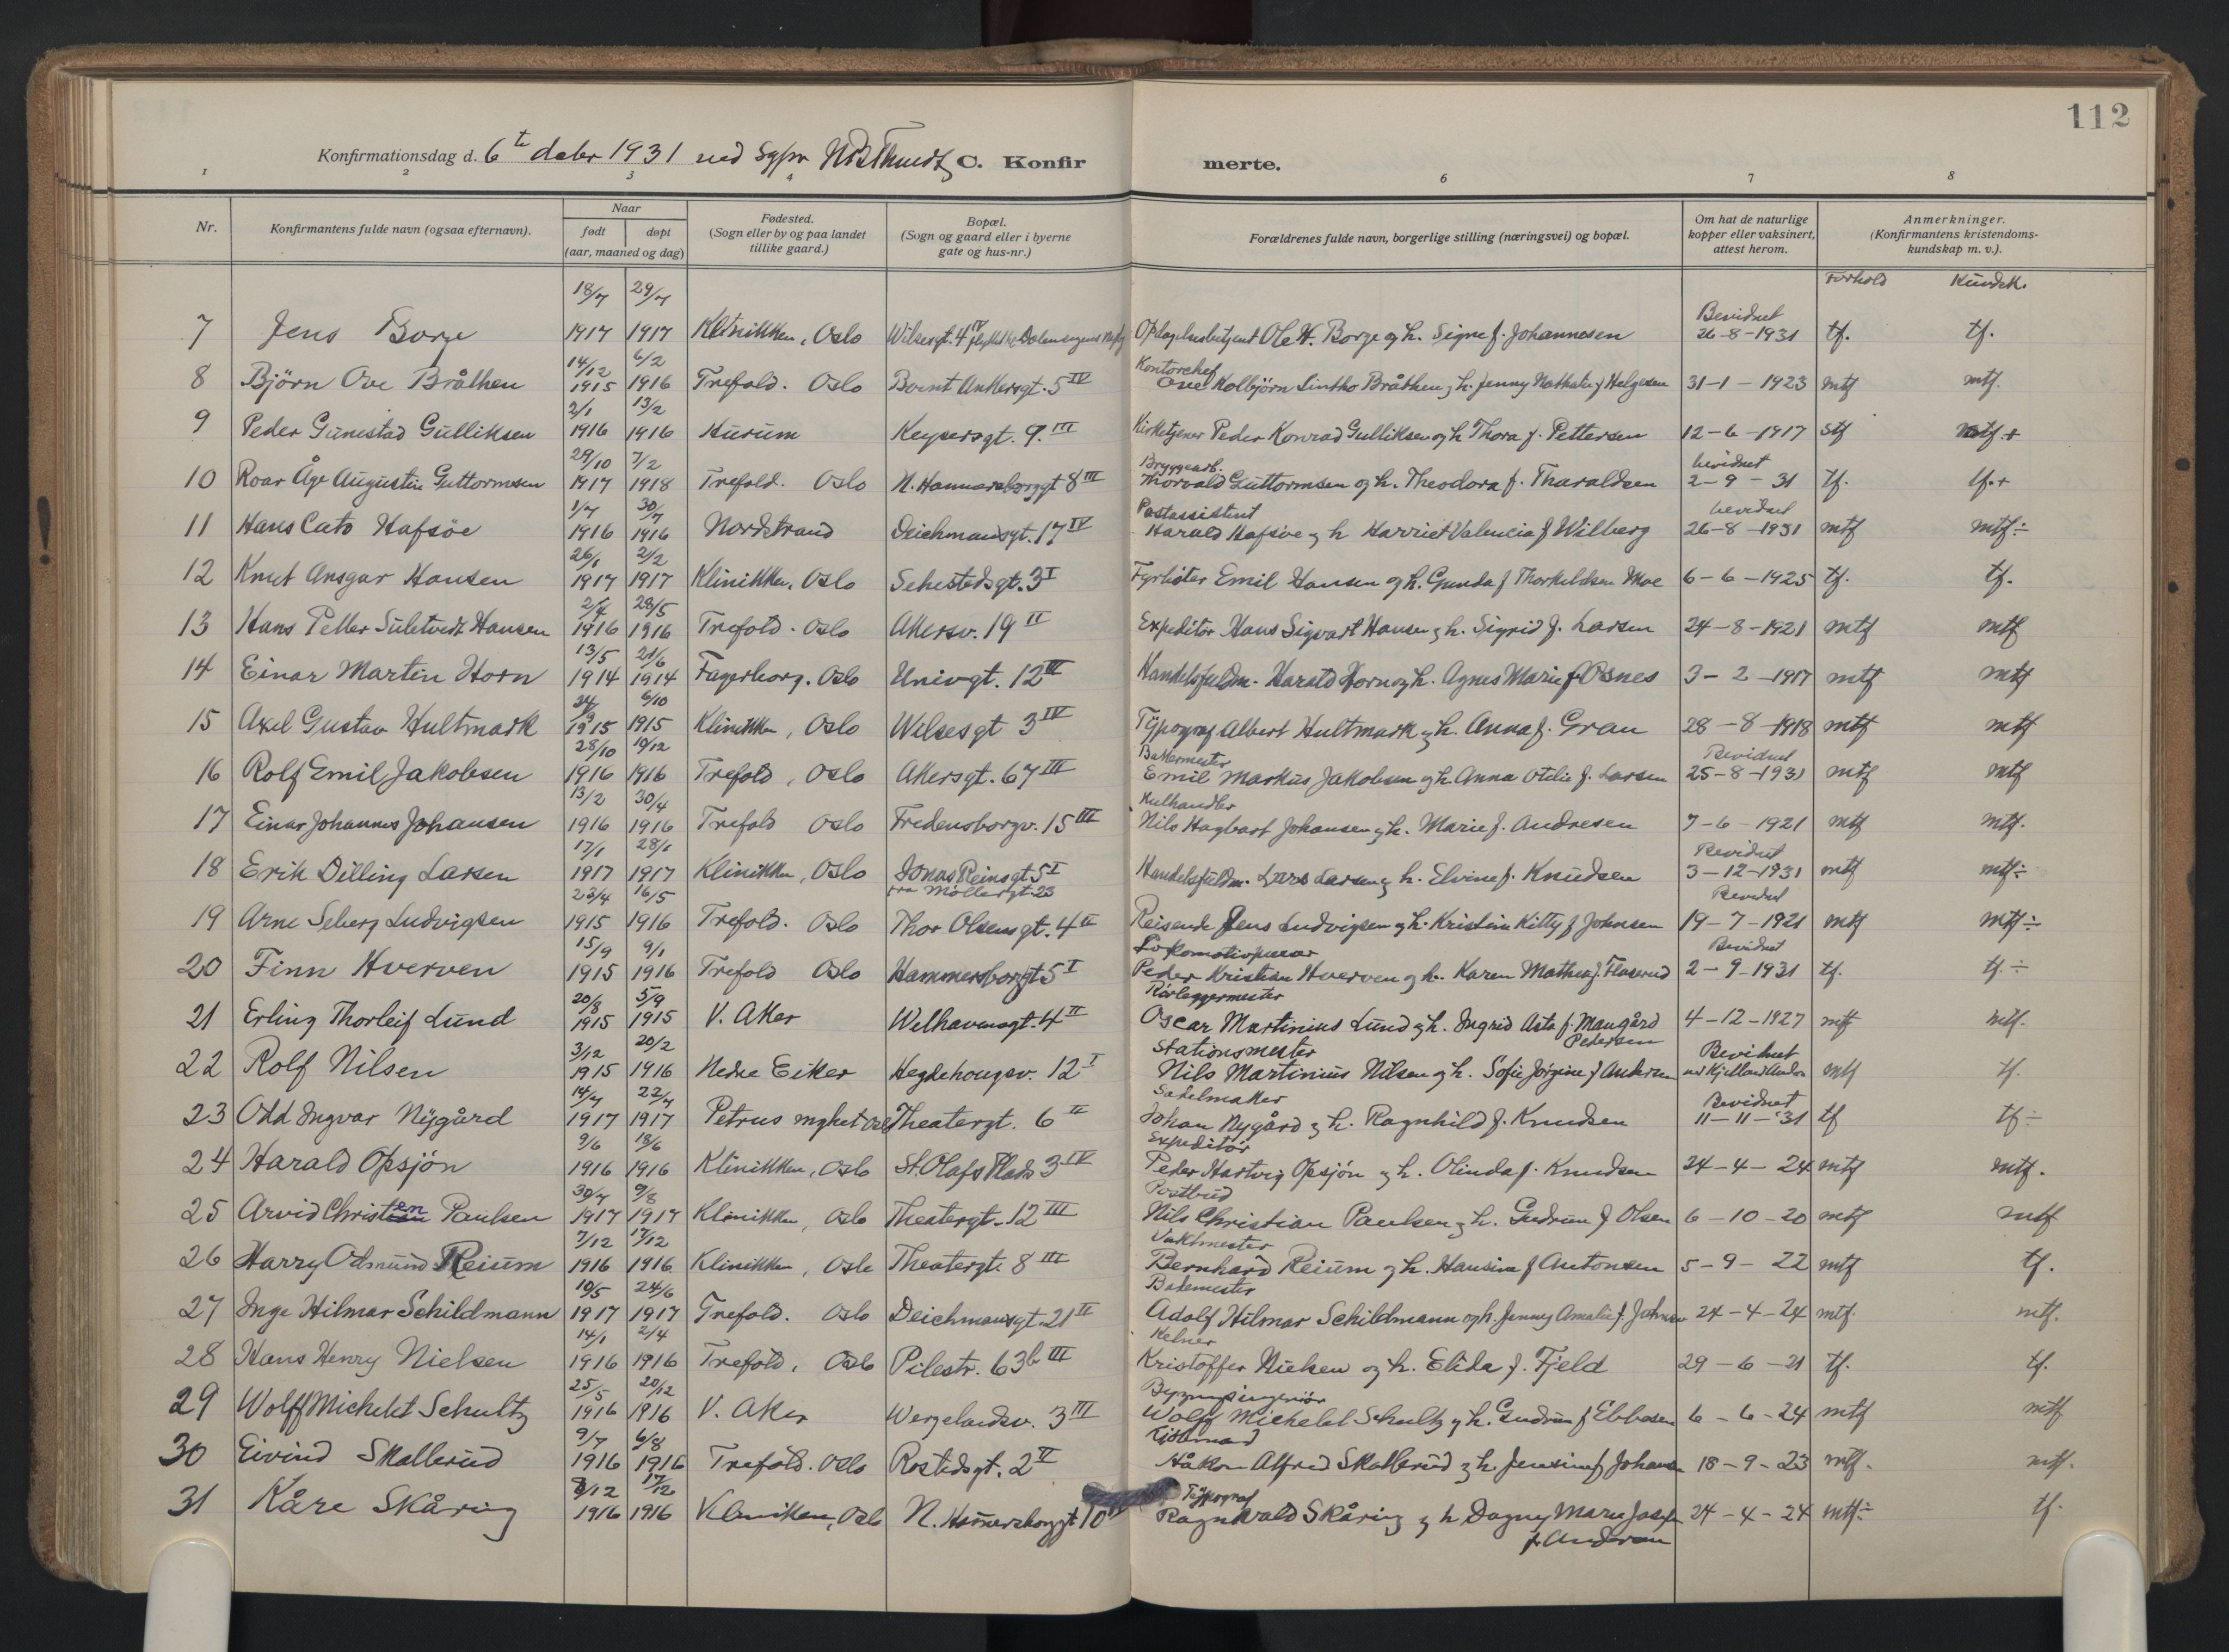 112
Konfirmationsdag d. 6te debr 1931 ved Sgpr C. Konfirmerte.
1 2 3 4 6 7 8
Nr. Konfirmantens fulde navn (ogsaa efternavn). Naar født døpt (aar, maaned og dag) Fødested. (Sogn eller by og paa landet tillike gaard.) Bopæl. (Sogn og gaard eller i byerne gate og hus-nr.) Forældrenes fulde navn, borgerlige stilling (næringsvei) og bopæl. Om hat de naturlige kopper eller vaksinert, attest herom. Anmerkninger. (Konfirmantens kristendoms-kundskap m. v.).
Forhold Kundsk.
18/7 29/7 Bevidnet
7 Jens Borge 1917 1917 Klinikken, Oslo Wilsesgt. 4 IV Ole H. Borge og h. Signe f. Johannesen 26-8-1931 tf. tf.
14/12 6/2 Kontorchef
8 Björn Ove Bråthen 1915 1916 Trefold. Oslo Bernt Ankersgt. 5 IV Ove Kolbjörn Lintho Bråthen og h. Jenny Nathalie f Helgesen 31-1-1923 mtf mtf.
2/1 13/2
9 Peder Gunestad Gulliksen 1916 1916 Hurum Keysersgt. 9. III Kirketjener Peder Konrad Gulliksen og h Thora f. Pettersen 12-6-1917 stf mtf +
29/10 7/2 Bryggearb. bevidnet
10 Roar Åge Augustin Guttormsen 1917 1918 Trefold. Oslo N. Hammersborggt 8 III Thorvald Guttormsen og h. Theodora f. Tharaldsen 2-9-31 tf. tf. +
1/7 30/7 Postassistent bevidnet
11 Hans Cato Hafsöe 1916 1916 Nordstrand Deichmansgt. 17 IV Harald Hafsöe og h Harriet Valencia f Wilberg 26-8-1931 mtf mtf ÷
26/1 2/2
12 Knut Ansgar Hansen 1917 1917 Klinikken, Oslo Sehestedsgt. 3 I Fyrbøter Emil Hansen og h. Gunda f Thorkildsen Moe 6-6-1925 tf. tf.
28/5
13 Hans Petter Suletvedt Hansen 1916 1916 Trefold. Oslo Akersv. 19 II Expeditör Hans Sigvart Hansen og h. Sigrid f. Larsen 24-8-1921 mtf mtf
13/5 21/6
14 Einar Martin Horn 1914 1914 Fagerborg. Oslo Univgt. 12 III Handelsfuldm. Harald Horn og h. Agnes Marie f Osnes 3-2-1917 mtf mtf
6/10
15 Axel Gustav Hultmark 1915 1915 Klinikken, Oslo Wilsesgt 3 IV Typograf Albert Hultmark og h. Anna f. Gran 28-8-1918 mtf mtf
28/10 10/12 Bakermester Bevidnet
16 Rolf Emil Jakobsen 1916 1916 Trefold, Oslo Akersgt. 67 III Emil Markus Jakobsen og h. Anna Otilie f. Larsen 25-8-1931 mtf mtf
13/2 30/4 Kulhandler
17 Einar Johannes Johansen 1916 1916 Trefold Oslo Fredensborgv. 15 III Nils Hagbart Johansen og h. Marie f. Andresen 7-6-1921 mtf mtf.
17/1 28/1 Bevidnet
18 Erik Dilling Larsen 1917 1917 Klinikken, Oslo Jonas Reinsgt. 5 I Handelsfuldm. Lars Larsen og h. Elvine f. Knudsen 3-12-1931 mtf mtf ÷
23/4 16/5 fra Møllergt. 23 Bevidnet
19 Arne Seberg Ludvigsen 1915 1916 Trefold. Oslo Thor Olsensgt. 4 II Reisende Jens Ludvigsen og h. Kristine Kitty f Johnsen 19-7-1921 mtf mtf ÷
15/9 9/1 Lokomotivpusser Bevidnet
20 Finn Hverven 1915 1916 Trefold Oslo Hammersborggt 5 I Peder Kristian Hverven og h. Karen Mathea f. 2-9-1931 tf. tf. ÷
20/8 5/9 Rörleggermester
21 Erling Thorleif Lund 1915 1915 V. Aker Welhavensgt. 4 II Oscar Martinius Lund og h. Ingrid Asta f. Maugård Pedersen 4-12-1927 mtf mtf.
3/12 20/2 Stationsmester Bevidnet
22 Rolf Nilsen 1915 1916 Nedre Eiker Hegdehougsv. 12 I Nils Martinius Nilsen og h. Sofie Jörgine f Andersen mtf tf.
14/7 22/7 Sadelmaker Bevidnet
23 Odd Ingvar Nygård 1917 1917 Petrus mghet Oslo Theatergt. 6 II Johan Nygård og h. Ragnhild f. Knudsen 11-11-31 tf tf ÷
9/6 18/6 Expeditör
24 Harald Opsjön 1916 1916 Klinikken, Oslo St. Olafs Plads 3 IV Peder Hartvig Opsjön og h. Olinda f. Knudsen 24-4-24 mtf mtf.
30/7 9/8 Postbud
25 Arvid Christen Paulsen 1917 1917 Klinikken, Oslo Theatergt. 12 III Nils Christian Paulsen og h. Gudrun f Olsen 6-10-20 mtf mtf
7/12 17/12 Vaktmester
26 Harry Odmund Reium 1916 1916 Klinikken, Oslo Theatergt. 8 III Bernhard Reium og h. Hansine f Antonsen 5-9-22 mtf tf.
10/5 24/6 Bademester
27 Inge Hilmar Schildmann 1917 1917 Trefold. Oslo Deichmansgt. 21 II Adolf Hilmar Schildmann og h. Jenny Amalie f. Johnsen 24-4-24 mtf. mtf.
14/1 2/4 Kelner
28 Hans Henry Nielsen 1916 1916 Trefold, Oslo Pilestr. 63b III Kristoffer Nielsen og h. Elida f. Fjeld 29-6-21 tf. tf.
25/5 20/12 Bygningsingeniör
29 Wolff Michelet Schultz 1916 1916 V. Aker Wergelandsv. 3 III Wolff Michelet Schultz og h. Gudrun f Ebbesen 6-6-24 mtf mtf
9/7 6/8
30 Eivind Skallerud 1916 1916 Trefold. Oslo Rostedsgt. 2 Håkon Alfred Skallerud og h. Jensine f Johansen 18-9-23 mtf. mtf.
8/12 17/12 Typograf
31 Kåre Skåring 1916 1916 Klinikken, Oslo N. Hammersborggt 10 Ragnvald Skåring og h Dagny Marie 24-4-24 mtf ÷ tf.
f. Andersen